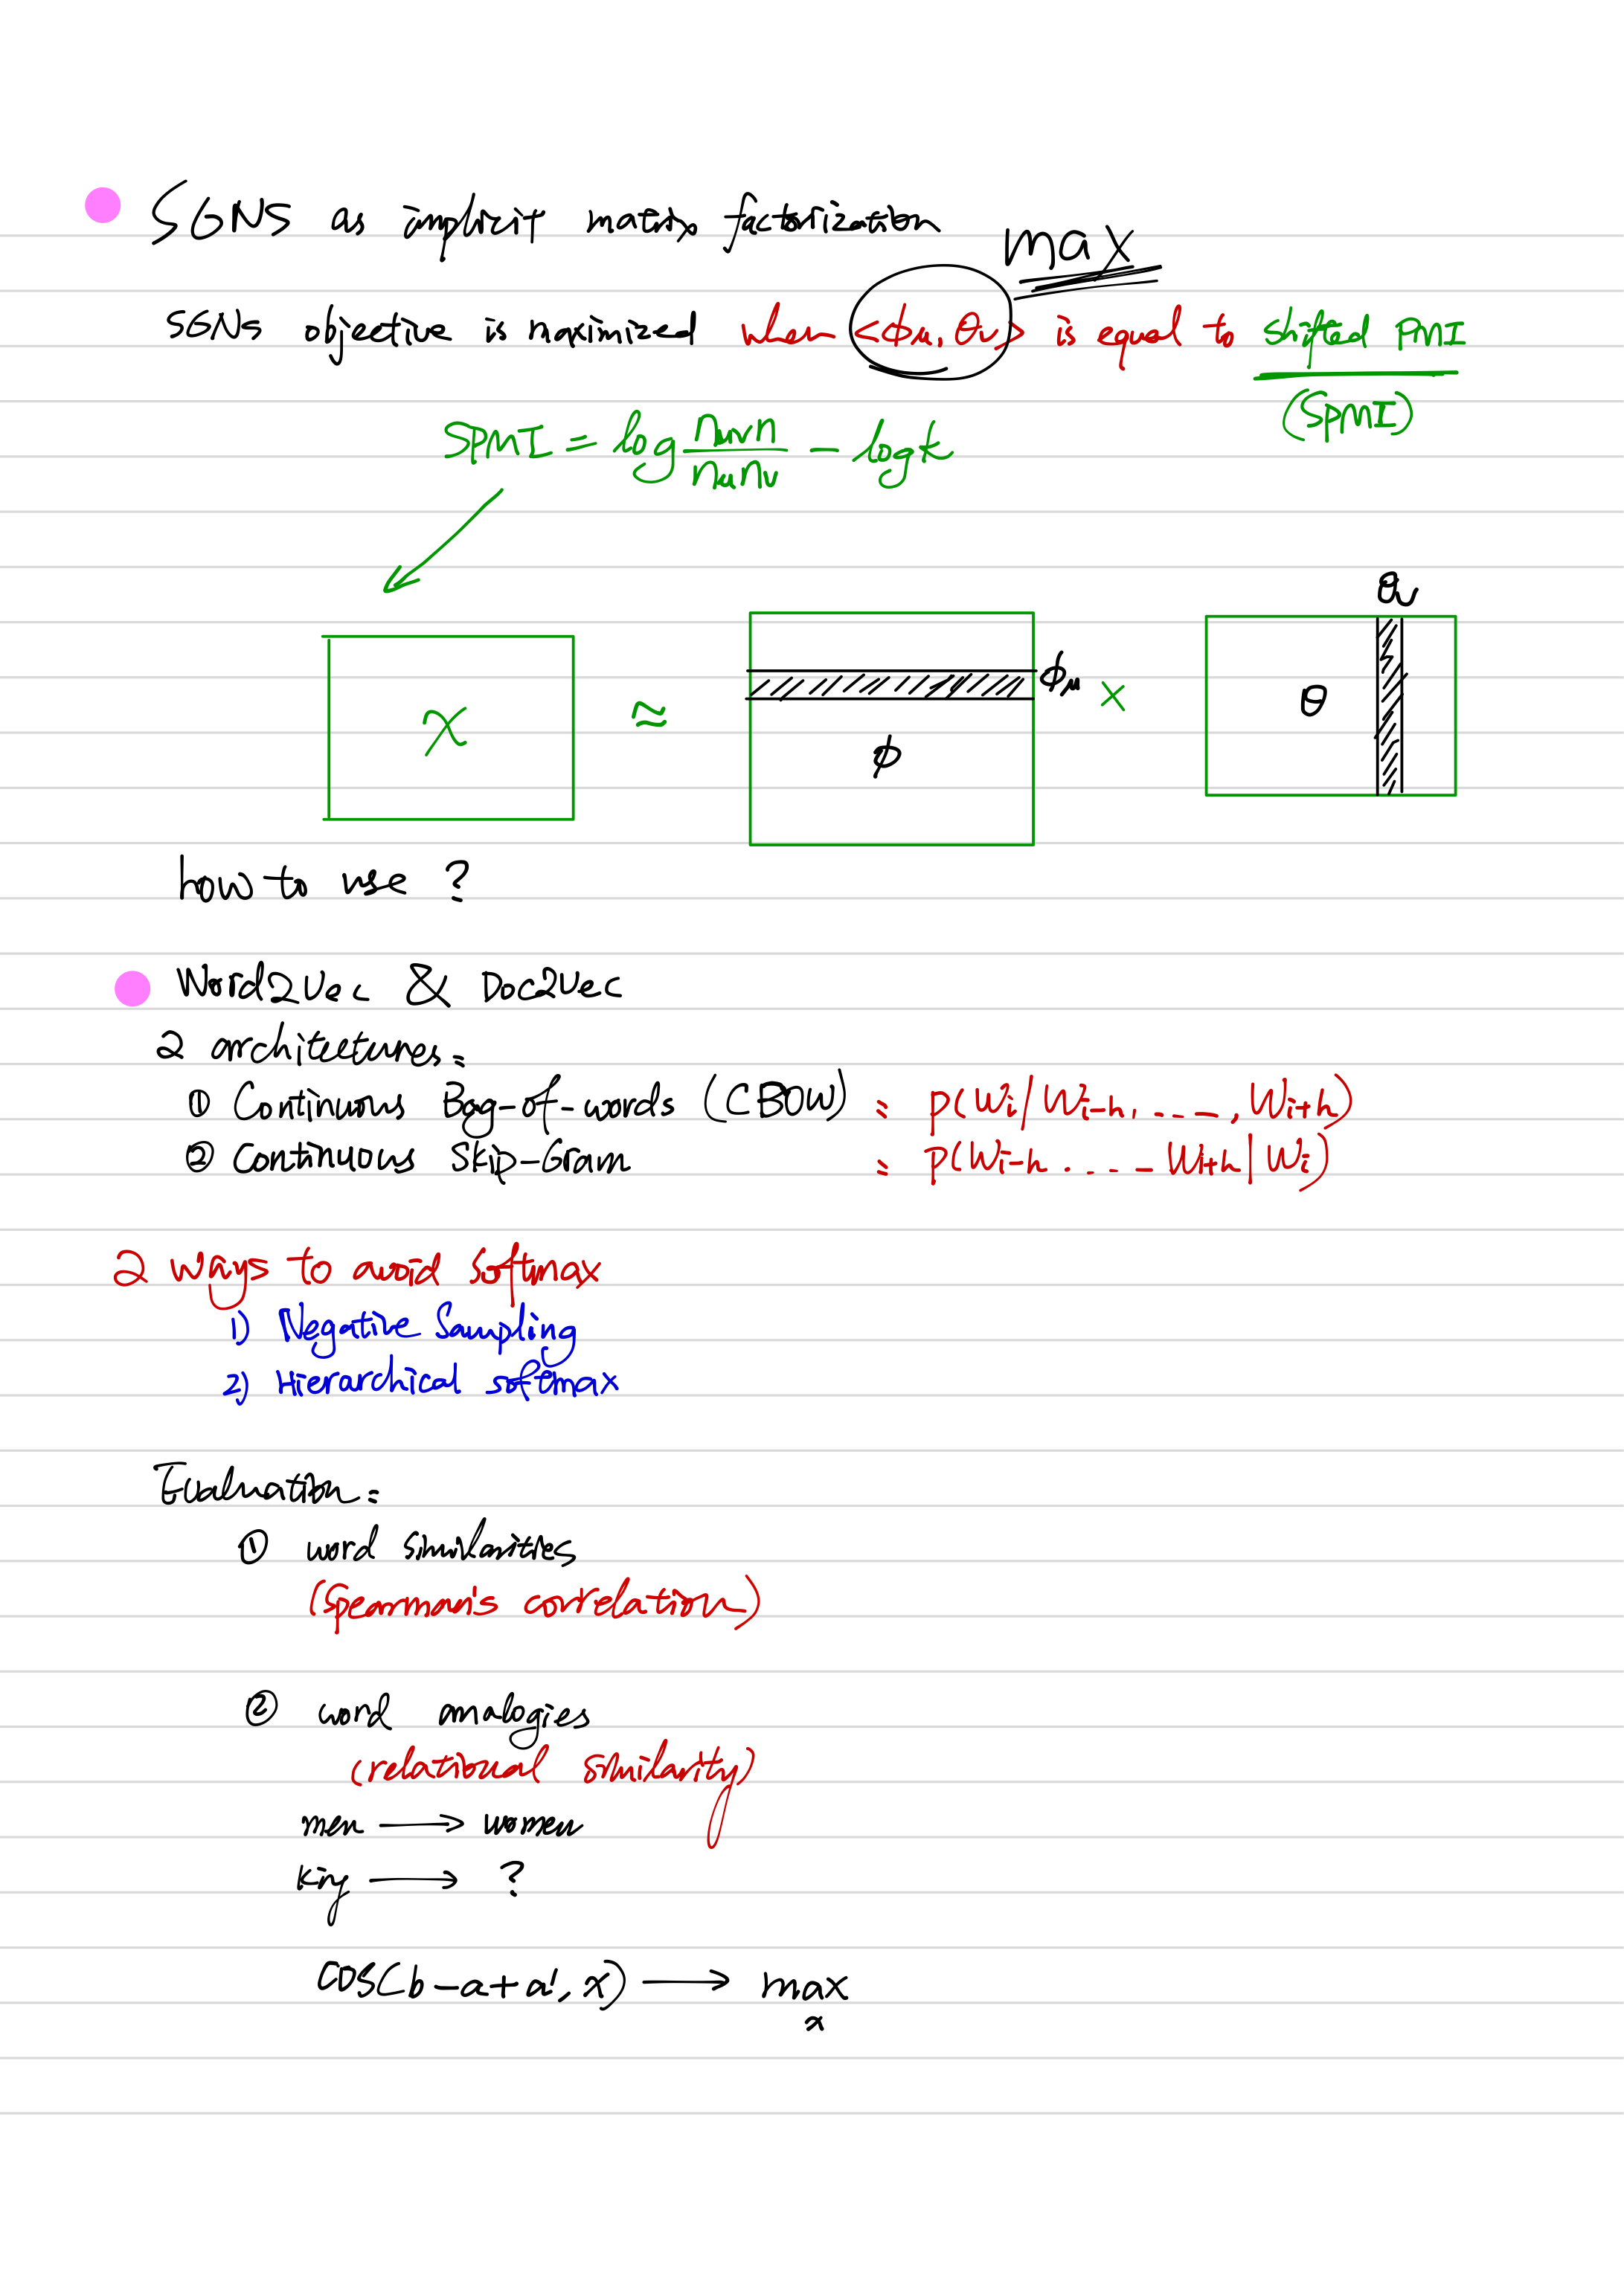 SGNS as implicit matrix factorization
max
SGNS objective is maximized when <ϕu, θv> is equal to shifted PMI
(SPMI)
SPMI = log nuvn / nunv - log k
θv
X ≈ ϕ ϕu × θ
how to use ?
Word2Vec & Doc2Vec
2 architectures:
① Continuous Bag-of-words (CBOW) : p(Wi/Wi-h, ...., Wi+h)
② Continuous Skip-Gram : p(Wi-h .... Wi+h|Wi)
2 ways to avoid softmax
1) Negative Sampling
2) Hierarchical softmax
Evaluation:
① word similarities
(Spearman's correlation)
② word analogies
(relational similarity)
men → women
king → ?
cos(b-a+a', x) → max
x